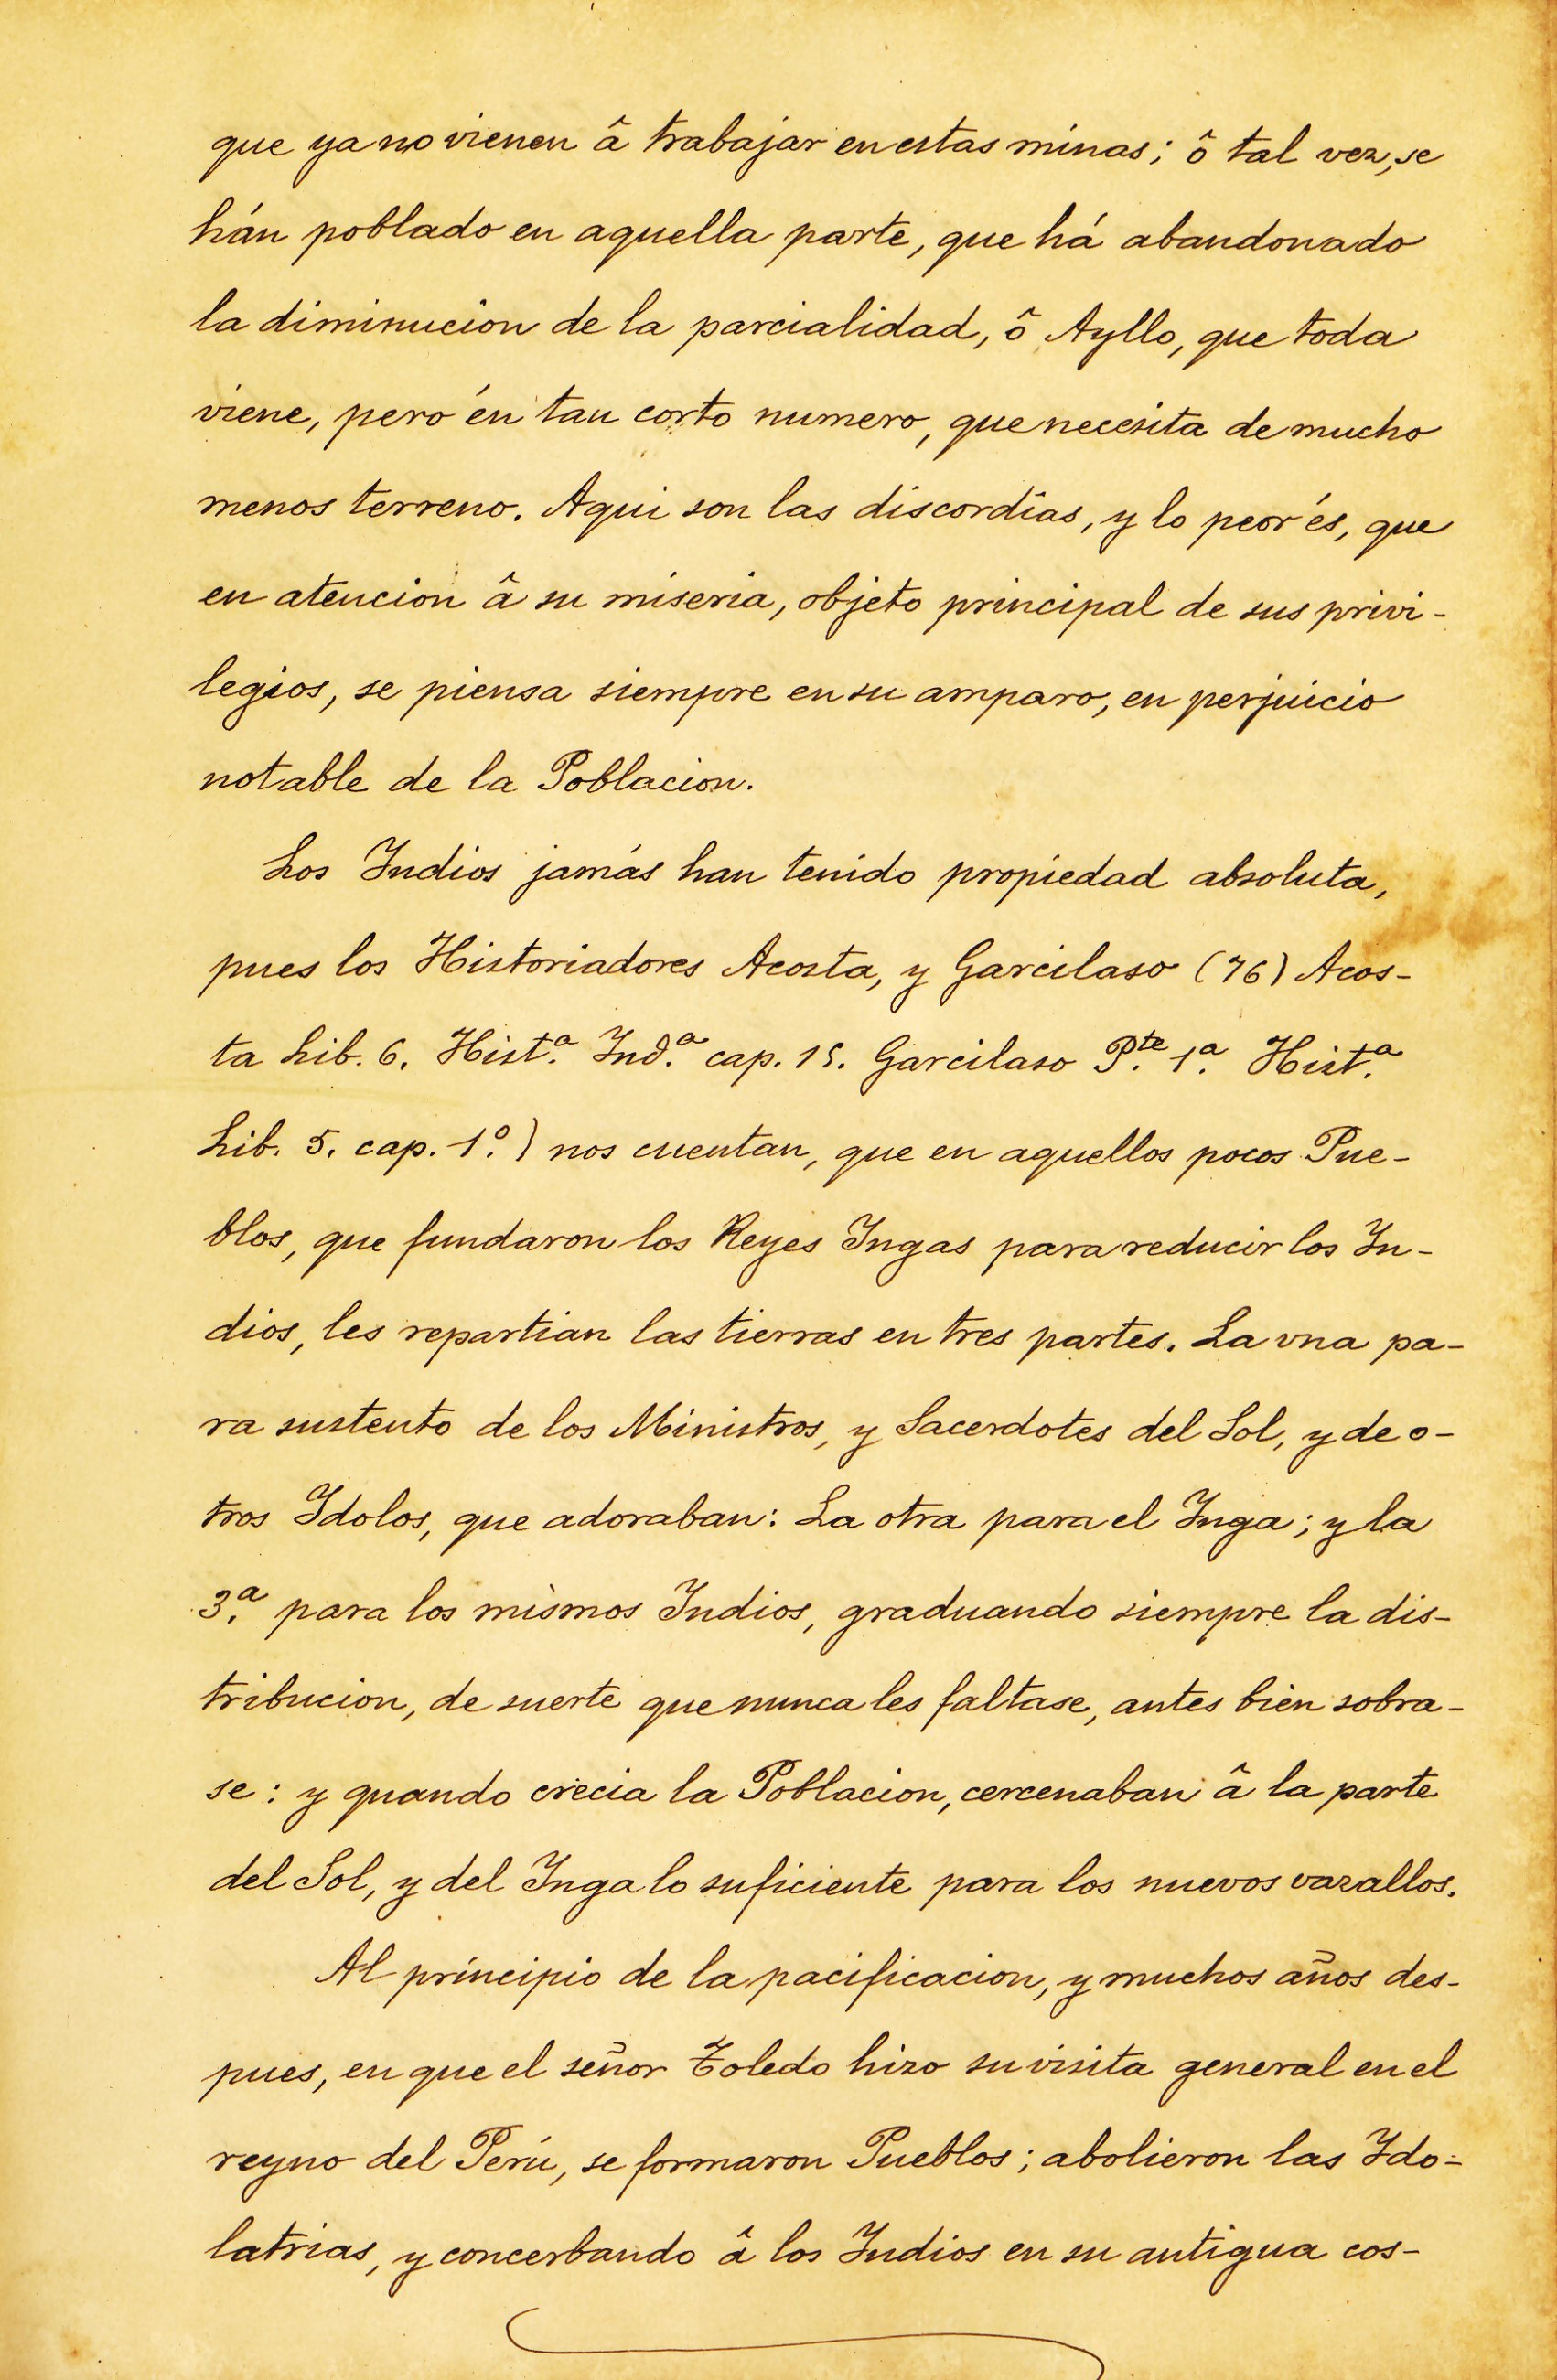 que ya no vienen â trabajar en estas minas; ô tal vez, se
hán poblado en aquella parte, que há abandonado
la diminucion de la parcialidad, ô Ayllo, que toda
viene, pero én tan corto numero, que necesita de mucho
menos terreno. Aqui son las discordias, y lo peor és, que
en atencion â su miseria, objeto principal de sus privi-
legios, se piensa siempre en su amparo, en perjuicio
notable de la Poblacion.
Los Indios jamás han tenido propiedad absoluta,
pues los Historiadores Acosta, y Garcilaso (76) Acos-
ta Lib. 6. Hist.ª Ind.ª cap. 15. Garcilaso P.te 1.ª Hist.ª
Lib. 5. cap. 1.º) nos cuentan, que en aquellos pocos Pue-
blos, que fundaron los Reyes Ingas para reducir los In-
dios, les repartian las tierras en tres partes. La vna pa-
ra sustento de los Ministros, y Sacerdotes del Sol, y de o-
tros Idolos, que adoraban: La otra para el Inga; y la
3.ª para los mismos Indios, graduando siempre la dis-
tribucion, de suerte que nunca les faltase, antes bien sobra-
se: y quando crecia la Poblacion, cercenaban â la parte
del Sol, y del Inga lo suficiente para los nuevos vazallos.
Al principio de la pacificacion, y muchos años des-
pues, en que el señor Toledo hizo su visita general en el
reyno del Perú, se formaron Pueblos; abolieron las Ido-
latrias, y concerbando â los Indios en su antigua cos-